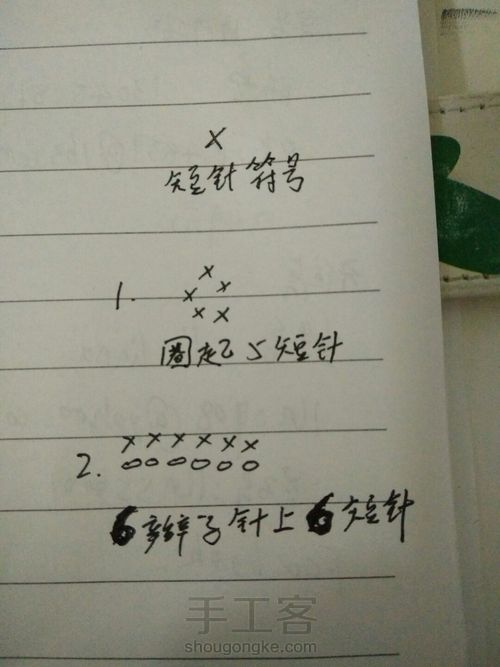 X
短针符号
1.
X
X X
X X
圈起 5 短针
2. XXXXXX
OOOOOO
6 辫子针上 6 短针
手工客
shougongke.com